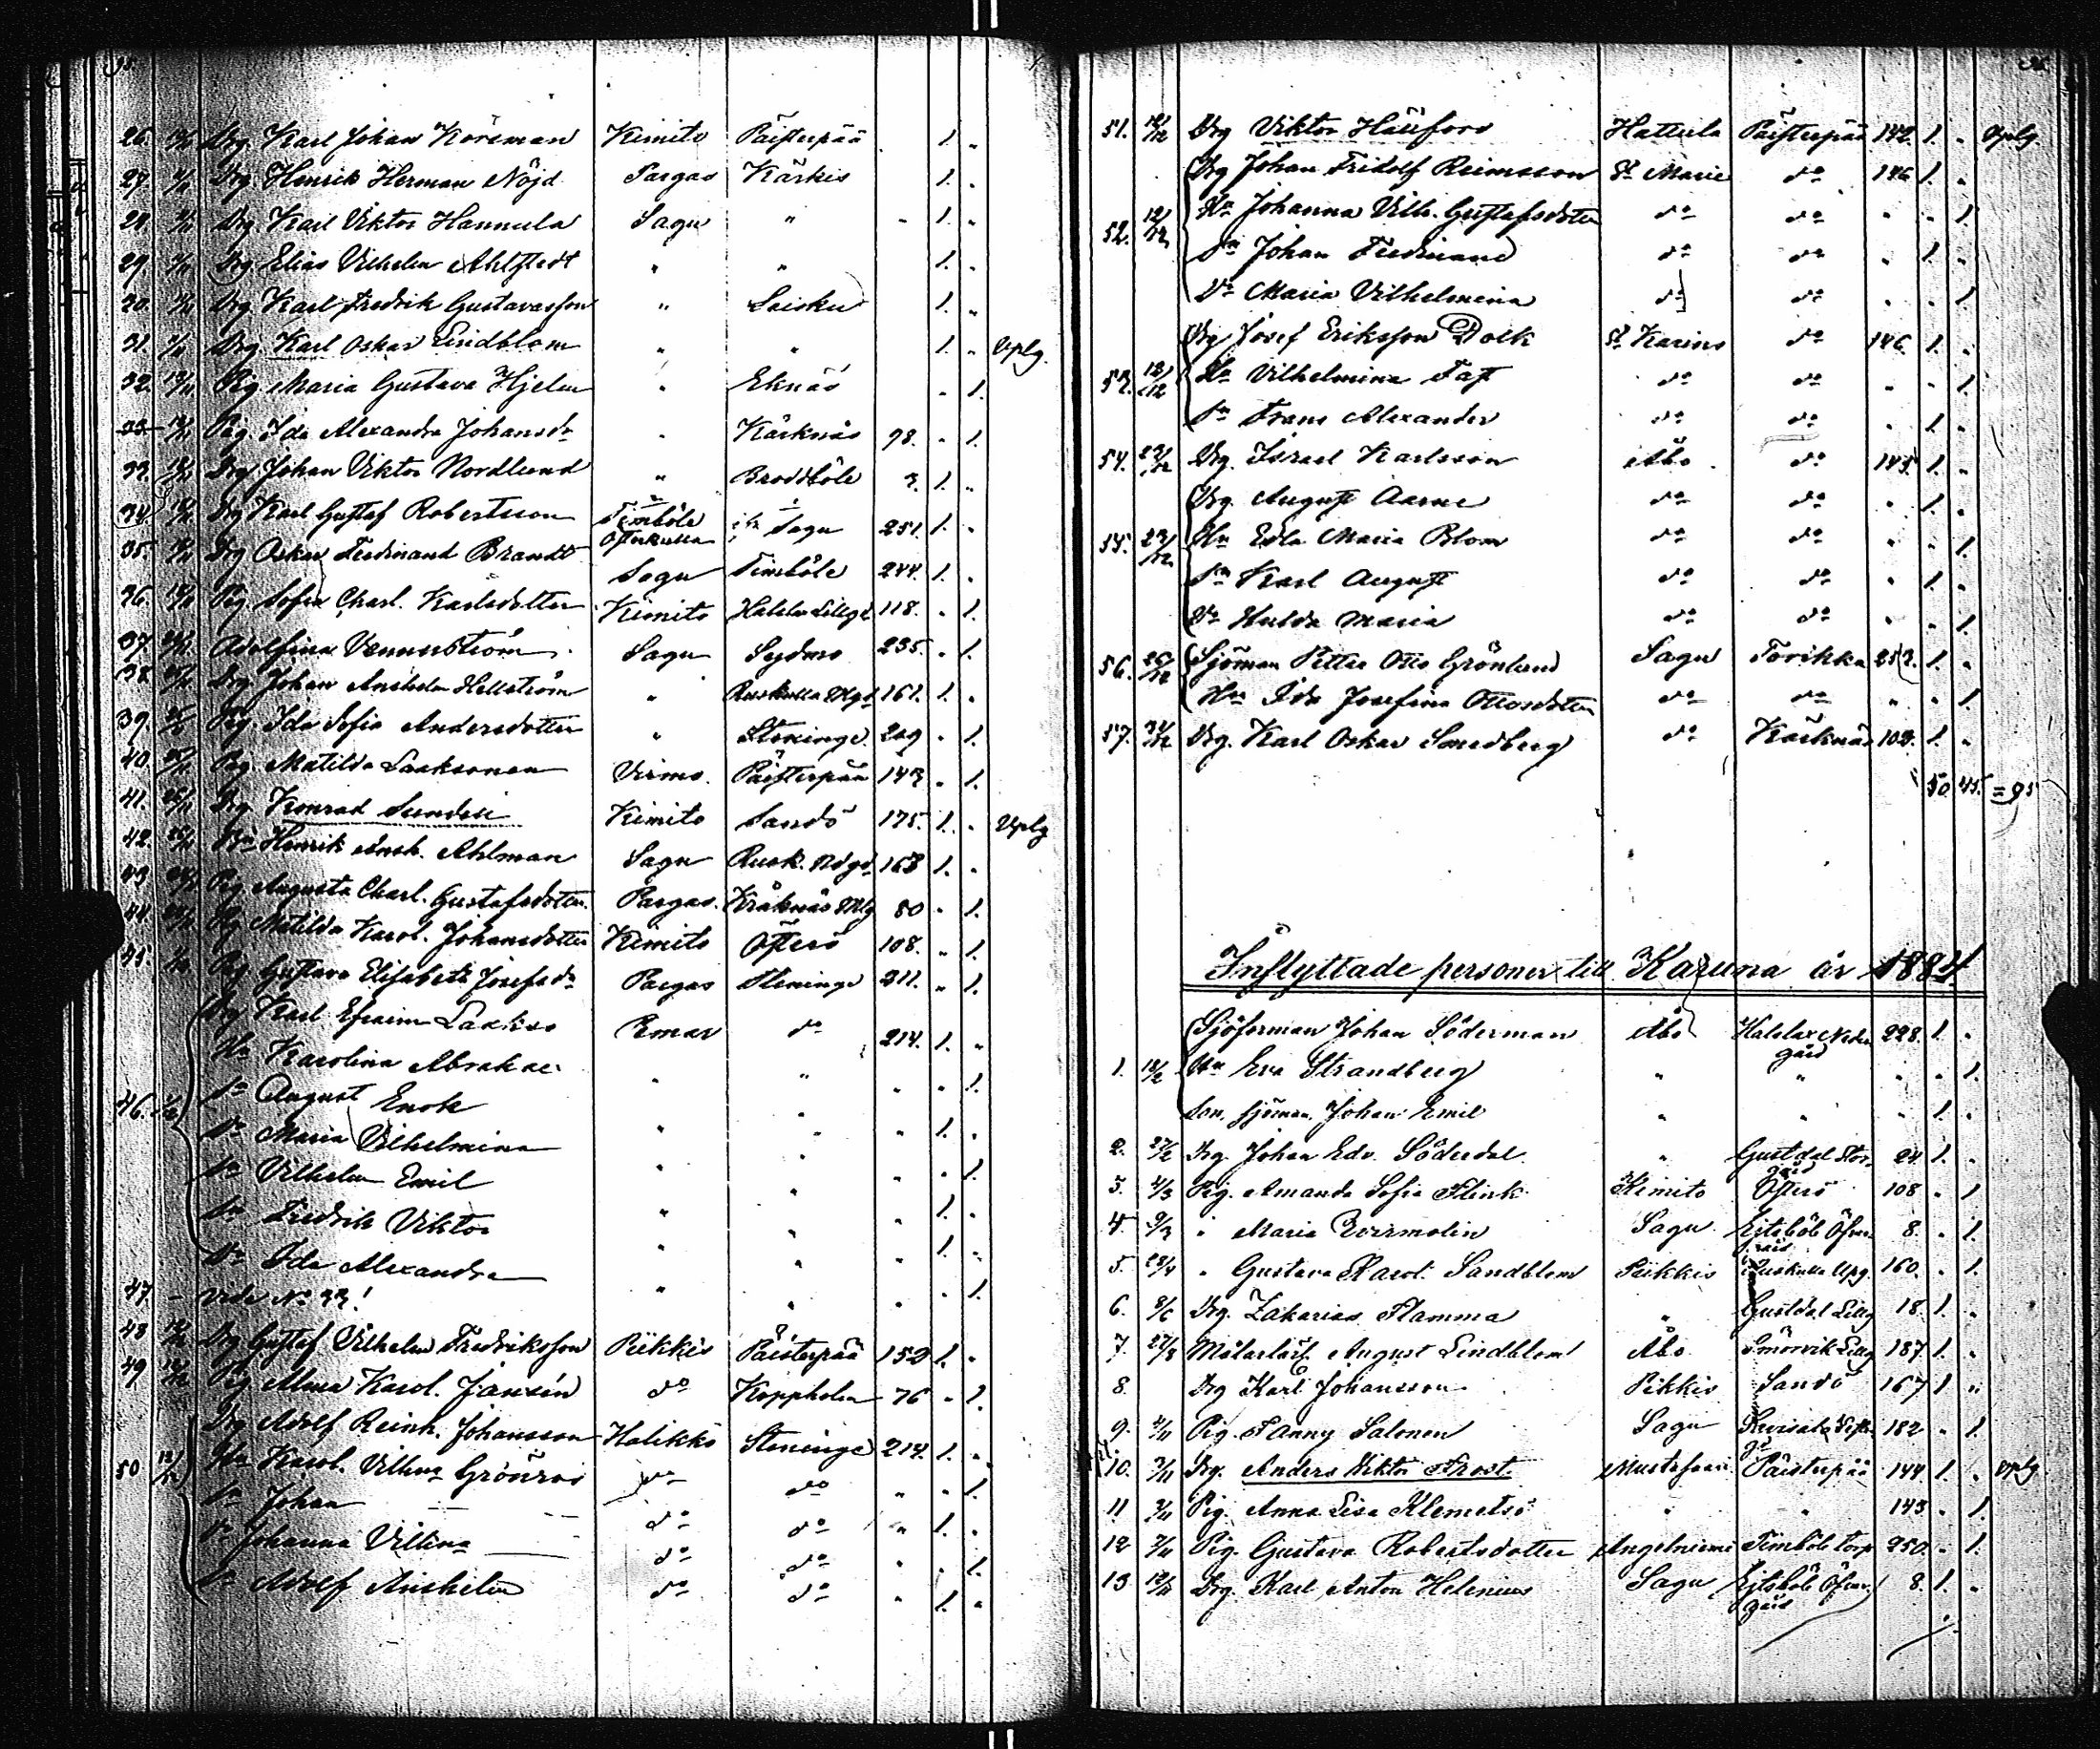 26. Drg. Karl Johan Korsman Kimito Päisterpää 1. „
27. Drg. Henrik Herman Nöjd Pargas Kärkis 1. „
28. Drg. Karl Viktor Hannula Sagu „ 1. „
29. Drg. Elias Vilhelm Ahlstedt „ „ 1. „
30. Drg. Karl Fredrik Gustavasson „ 1. „
31. Drg. Karl Oskar Lindblom „ „ 1. „ Uplg.
32. Pig. Maria Gustava Hjelm „ Eknäs „ 1.
33. Pig. Ida Alexandra Johansdr „ Kärknäs 98. „ 1.
33. Drg. Johan Viktor Nordlund „ Broddböle 3. 1. „
34. Drg Karl Gustaf Robertsson Timböle Sagu 251. 1. „
35. Drg Oskar Ferdinand Brandt Sagu Timböle 244. 1. „
36. Pig. Sofia Charl. Karlsdotter Kimito Halslax Lillgd 118. „ 1.
37. Adolfina Vennerström Sagu Sydmo 235. „ 1.
38. Drg Johan Anshelm Hellström „ Ruskulla Nlgd 161. 1. „
39. Pig. Ida Sofia Andersdotter „ Steninge. 209 „ 1.
40. Pig. Matilda Laaksonen Virmo. Päisterpää 143 „ 1.
41. Drg Konrad Sundell Kimito Sandö 175. 1. „ Uplg
42. Henrik Ansh. Ahlman Sagu Rusk. Ndgd 163 1. „
43 Pig Augusta Charl. Gustafsdotter. Pargas. Kråknäs 80 „ 1.
44. Pig Matilda Karol. Johansdotter Kimito Österö 108. „ 1.
45. Pig Gustava Elisabeth Josefsdr Pargas Steninge 211. „ 1.
Drg Karl Efraim Laakso Pemar do 214. 1. „
Hu Karolina Abrahae. „ „ „ „ 1.
46. Sn August Enok „ „ „ 1. „
Dr Maria Vilhelmina „ „ „ „ 1.
Sn Vilhelm Emil „ „ „ 1. „
Sn Fredrik Viktor „ „ „ 1. „
Dr Ida Alexandra „ „ „ „ 1.
47. – Vide No 33!
48 Drg Gustaf Vilhelm Fredriksson Pikkis Päisterpää 152 1. „
49. Pig Alma Karol. Jansén do Koppholm 76 „ 1.
Drg Adolf Reinh. Johansson Halikko Steninge 214. 1. „
50 12/12 Hu Karol. Vilhma Grönroos do do „ „ 1.
Sn Johan do do „ 1. „
Dr Johanna Villina do do „ „ 1.
Sn Adolf Anshelm do do „ 1. „
51. 12/12 Drg Viktor Hällfors Hattula Päisterpää 142. 1. „ Uplg.
Drg Johan Fridolf Reimsson St Marie do 146 1. „
52. 12/12 Hu Johanna Vilh. Gustafsdotter do do „ „ 1.
Sn Johan Ferdinand do do „ 1. „
Dr Maria Vilhelmina do do „ „ 1.
Drg Josef Eriksson Dolk St Karins do 146. 1. „
53. 12/12 Hu Vilhelmina Fast do do „ „ 1.
Sn Frans Alexander do do „ 1. „
54. 22/12 Drg. Israel Karlsson Åbo do 145. 1. „
Drg. August Aarne do do „ 1. „
55. 23/12 Hu Edla Maria Blom do do „ „ 1.
Sn Karl August do do „ 1. „
Dr Hulda Maria do do „ „ 1.
56. 26/12 Sjöman Petter Otto Grönlund Sagu Torikka 253. 1. „
Hu Ida Josefina Ottosdotter do do „ „ 1.
57. 31/12 Drg. Karl Oskar Smedberg do Kärknäs 103. 1. „
50 45. = 95
Inflyttade personer till Karuna år 1884
Sjöforman Johan Söderman Åbo Halslax Nedergård 228. 1. „
1. 18/2 Hu Eva Strandberg „ „ „ „ 1.
Son, sjöman, Johan Emil „ „ „ 1. „
2. 27/2 Drg. Johan Edv. Söderdal. „ Gustdal Storgård 24 1. „
3. 4/3 Pig. Amanda Sofia Flink Kimito Österö 108 „ 1
4. 9/3 „ Maria Evirmolin Sagu Ejtsböle Öfvergård 8. „ 1.
5. 28/4 „ Gustava Karol. Sandblom Pikkis Ruskulla Upg. 160. „ 1.
6. 8/6 Drg. Zakarias Flamma „ Gustdal Lillg 18. 1. „
7. 27/8 Målarlärl. August Lindblom Åbo Smörvik Lillg 187. 1. „
8. Drg Karl Johansson Pikkis Sandö 167 1 „
9. 4/11 Pig. Fanny Salonen Sagu 182 „ 1.
10. 7/11 Drg. Anders Viktor Frost. Mustasaari Päisterpää 144 1. „ Uplg.
11 7/11 Pig. Anna Lisa Klemetsd „ „ 143 „ 1.
12 7/11 Pig. Gustava Robertsdotter Angelniemi Timböle torp 250. „ 1.
13 Drg. Karl Anton Helenius Sagu Ejtsböle Öfvergård 8. 1. „